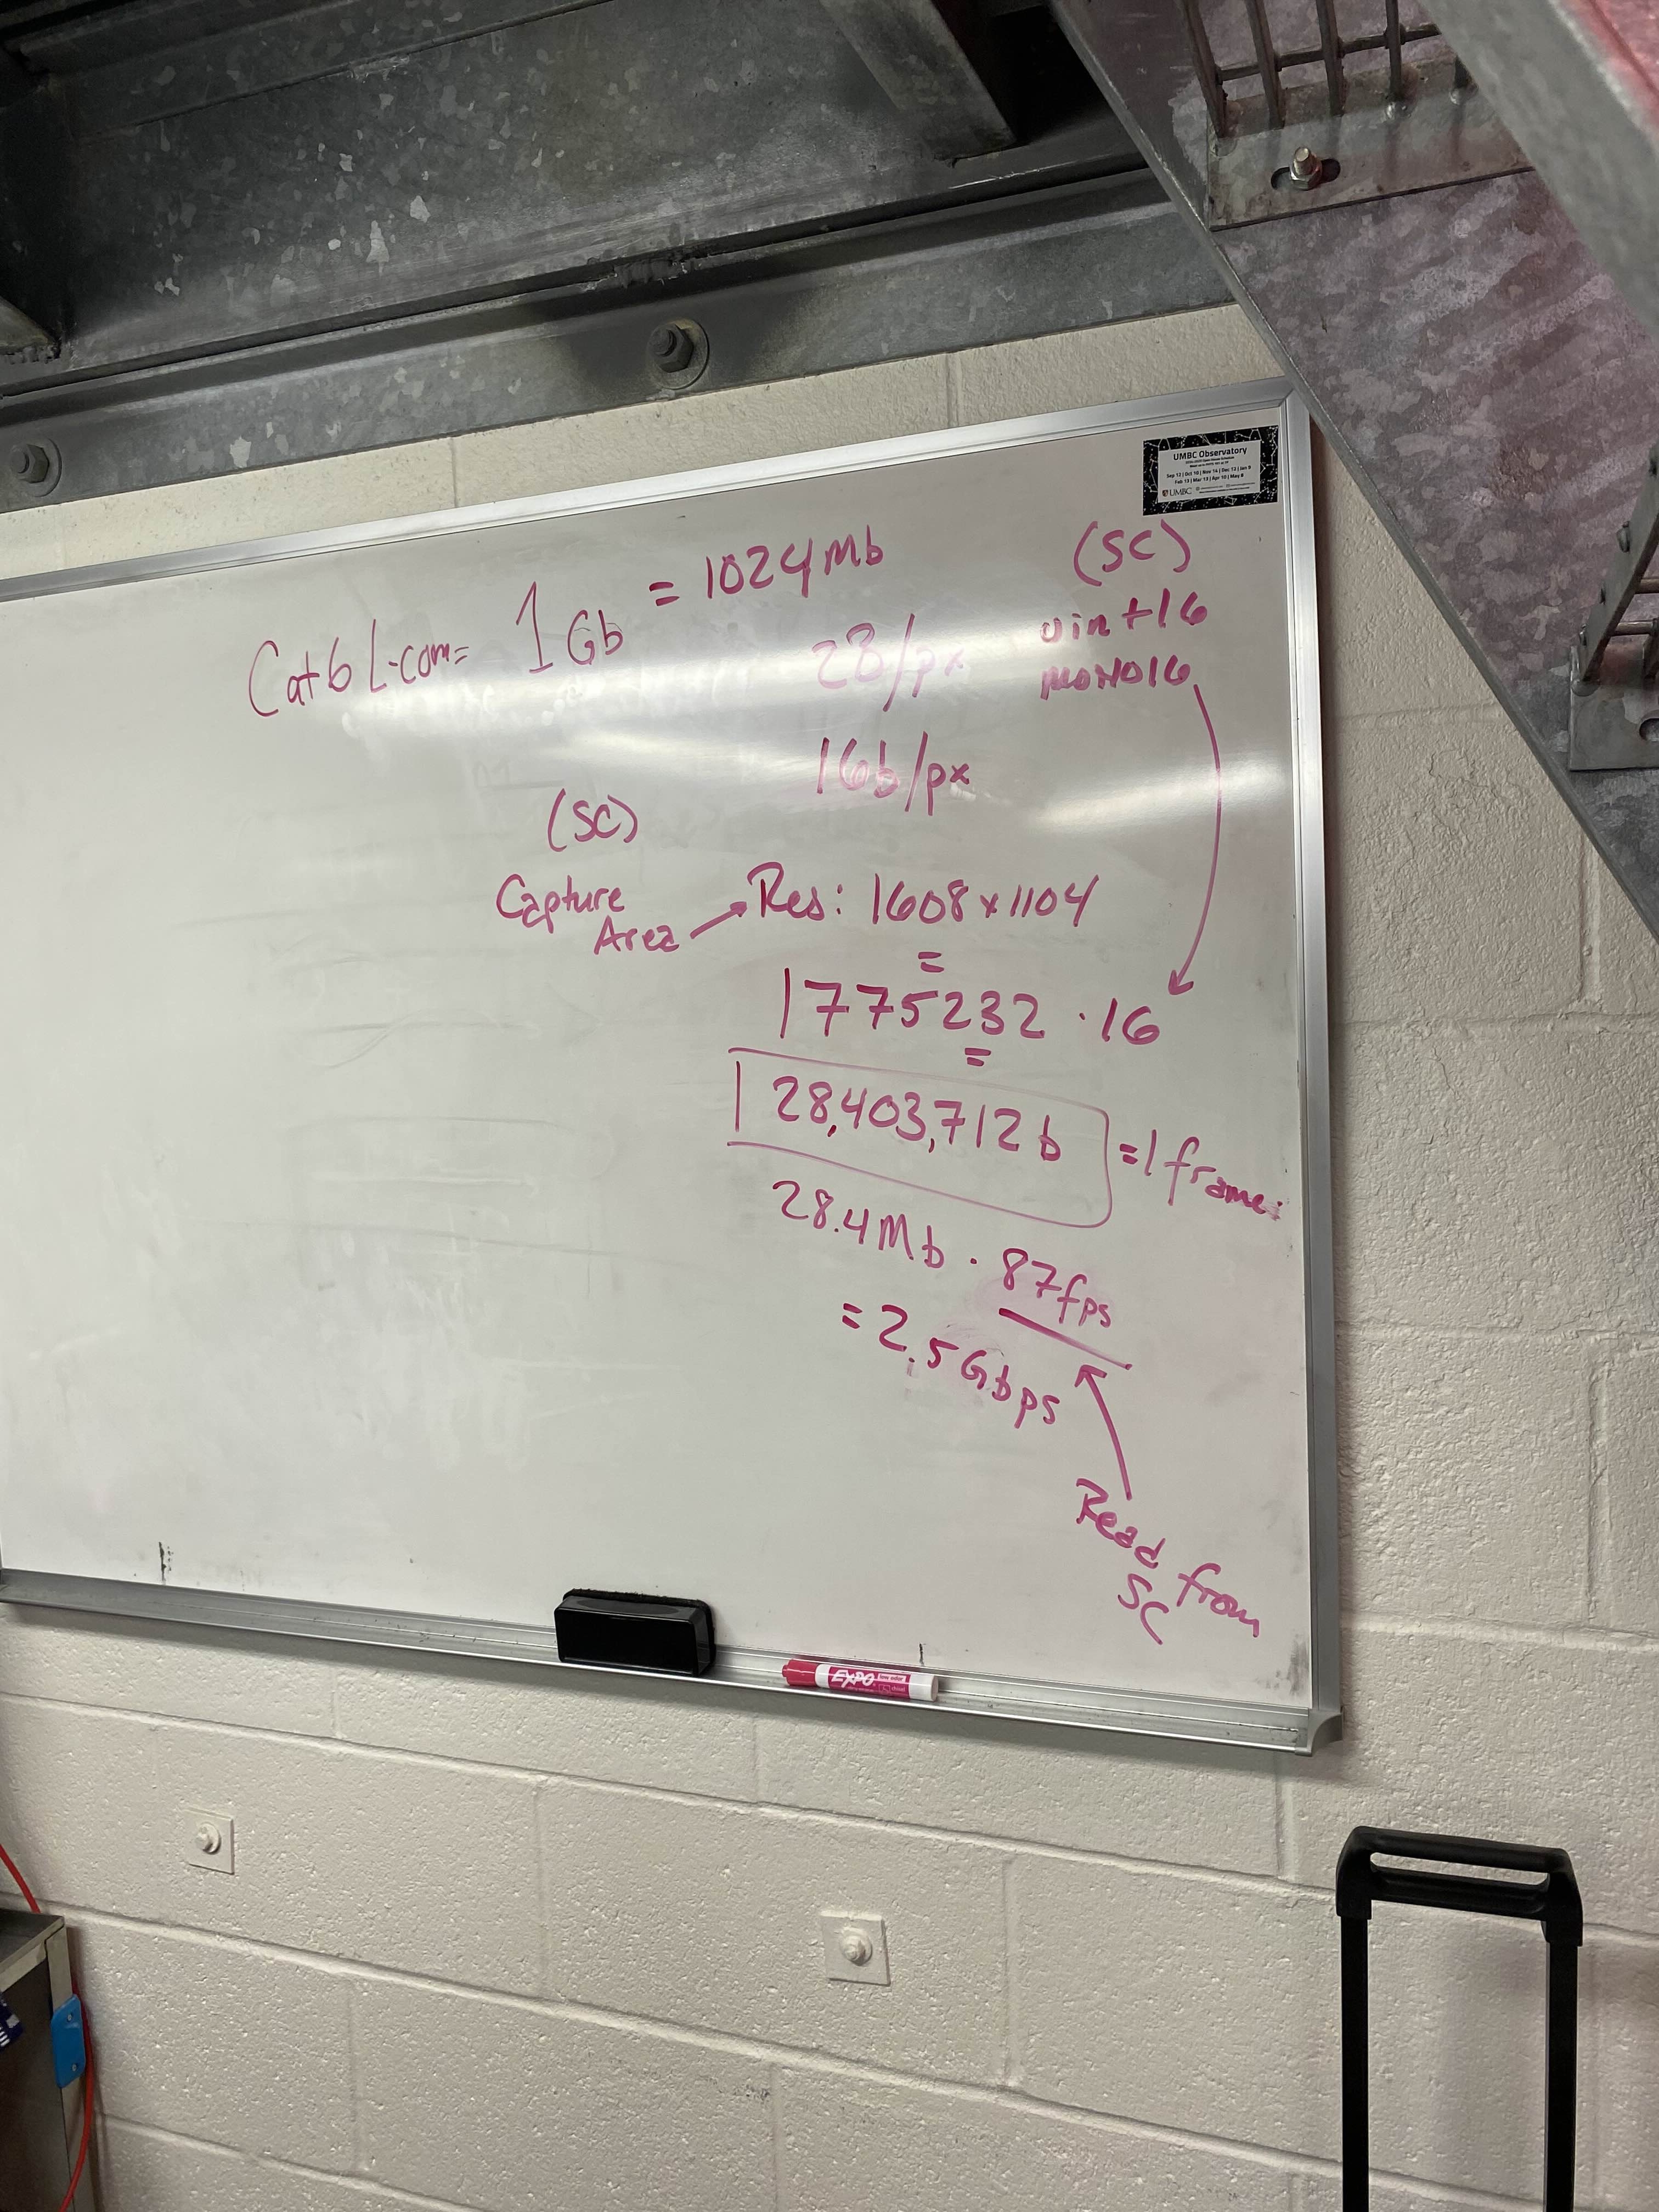 UMBC Observatory
Sep 12 | Oct 10 | Nov 14 | Dec 12 | Jan 9
Feb 13 | Mar 13 | Apr 10 | May 8
UMBC
Cat6 L-com= 1Gb = 1024Mb
2B/px
16b/px
(SC)
uint16
MONO16
(SC)
Capture
Area
Res: 1608x1104
=
1775232 · 16
=
28,403,712b =1 frame
28.4Mb · 87fps
=2.5Gbps
Read from
SC
EXPO
low odor